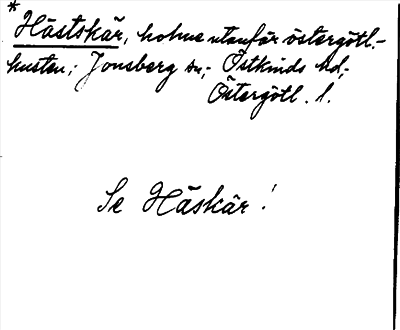 * Hästskär, holme utanför östergötl.-
kusten; Jonsberg sn,; Östkinds hd,;
Östergötl. l.
Se Häskär!